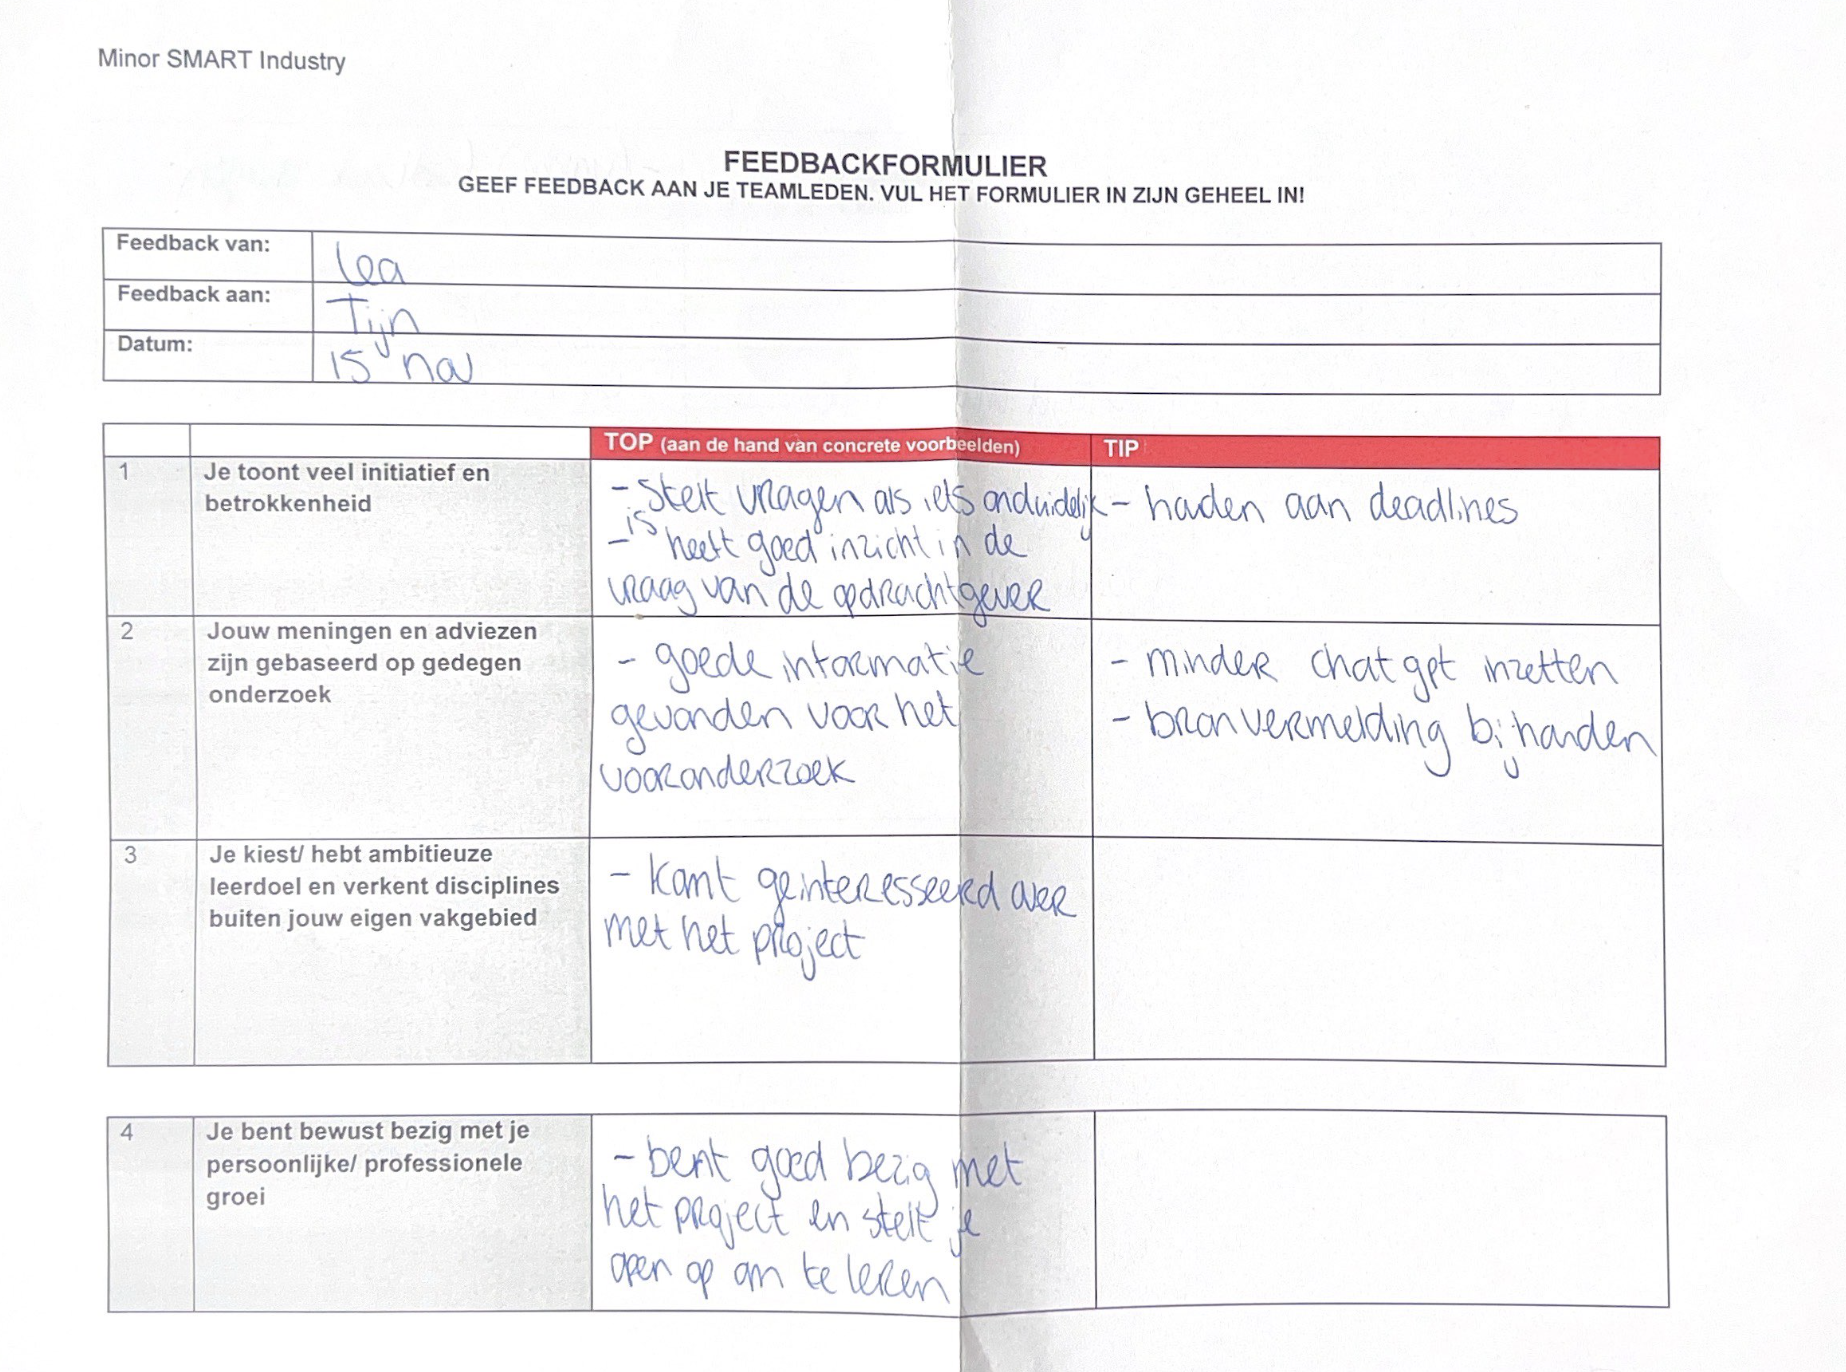 Minor SMART Industry
FEEDBACKFORMULIER
GEEF FEEDBACK AAN JE TEAMLEDEN. VUL HET FORMULIER IN ZIJN GEHEEL IN!
Feedback van: Lea
Feedback aan: Tijn
Datum: 15 nov
TOP (aan de hand van concrete voorbeelden) TIP
1 Je toont veel initiatief en
betrokkenheid
- Stelt vragen als iets onduidelijk
is
- heeft goed inzicht in de
vraag van de opdrachtgever
- houden aan deadlines
2 Jouw meningen en adviezen
zijn gebaseerd op gedegen
onderzoek
- goede informatie
gevonden voor het
vooronderzoek
- minder chat gpt inzetten
- bronvermelding bijhouden
3 Je kiest/ hebt ambitieuze
leerdoel en verkent disciplines
buiten jouw eigen vakgebied
- komt geinteresseerd over
met het project
4 Je bent bewust bezig met je
persoonlijke/ professionele
groei
- bent goed bezig met
het project en stelt je
open op om te leren